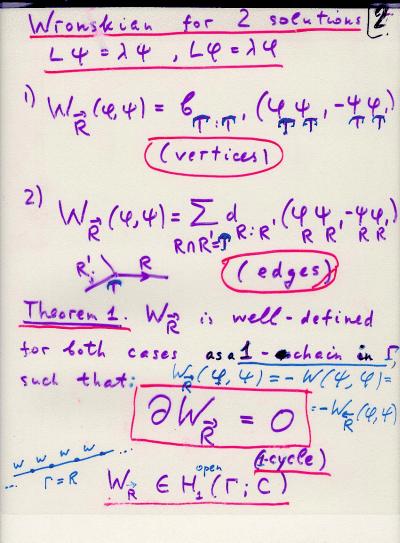 Wronskian for 2 solutions 2
Lψ = λψ , Lφ = λφ
1) W_R⃗ (φ,ψ) = b_{T:T'} (φ_T ψ_T' - ψ_T φ_T')
(vertices)
2) W_R⃗ (φ,ψ) = Σ_{R∩R'=T} d_{R:R'} (φ_R ψ_R' - ψ_R φ_R')
R' T R
(edges)
Theorem 1. W_R⃗ is well-defined
for both cases as a 1-chain in Γ,
such that: W_R⃗ (φ,ψ) = -W(ψ,φ) =
= -W_R⃖ (φ,ψ)
∂W_R⃗ = 0
(1-cycle)
w w w w
... Γ = R ...
W_R⃗ ∈ H_1^open (Γ; C)